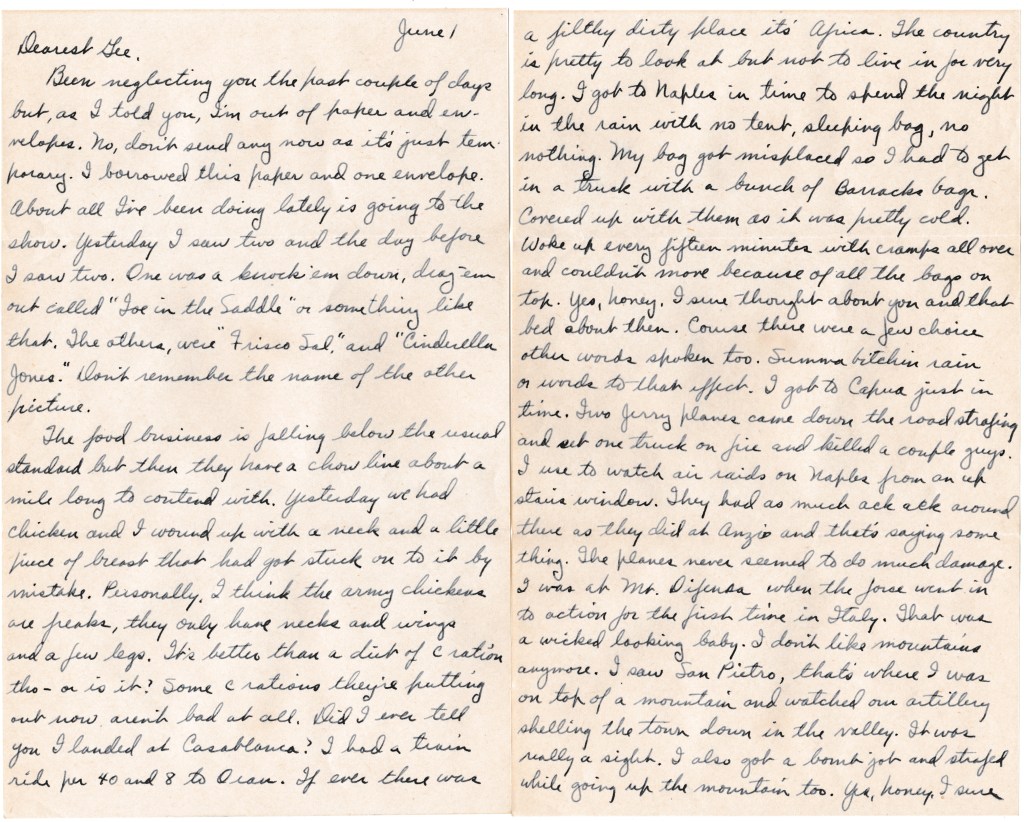 June 1
Dearest Gee,
Been neglecting you the past couple of days
but, as I told you, I'm out of paper and en-
velopes. No, don't send any now as it's just tem-
porary. I borrowed this paper and one envelope.
About all I've been doing lately is going to the
show. Yesterday I saw two and the day before
I saw two. One was a knock 'em down, drag 'em
out called "Joe in the Saddle" or something like
that. The others, were "Frisco Sal," and "Cinderella
Jones." Don't remember the name of the other
picture.
The food business is falling below the usual
standard but then they have a chow line about a
mile long to contend with. Yesterday we had
chicken and I wound up with a neck and a little
piece of breast that had got stuck on to it by
mistake. Personally, I think the army chickens
are freaks, they only have necks and wings
and a few legs. It's better than a diet of C ration
tho - or is it? Some C rations they're putting
out now aren't bad at all. Did I ever tell
you I landed at Casablanca? I had a train
ride per 40 and 8 to Oran. If ever there was
a filthy dirty place it's Africa. The country
is pretty to look at but not to live in for very
long. I got to Naples in time to spend the night
in the rain with no tent, sleeping bag, no
nothing. My bag got misplaced so I had to get
in a truck with a bunch of Barracks bags.
Covered up with them as it was pretty cold.
Woke up every fifteen minutes with cramps all over
and couldn't move because of all the bags on
top. Yes, honey, I sure thought about you and that
bed about then. Course there were a few choice
other words spoken too. Summa bitchin rain
or words to that effect. I got to Capua just in
time. Two Jerry planes came down the road strafing
and set one truck on fire and killed a couple guys.
I use to watch air raids on Naples from an up
stairs window. They had as much ack ack around
there as they did at Anzio and that's saying some
thing. The planes never seemed to do much damage.
I was at Mt. Difensa when the force went in
to action for the first time in Italy. That was
a wicked looking baby. I don't like mountains
anymore. I saw San Pietro, that's where I was
on top of a mountain and watched our artillery
shelling the town down in the valley. It was
really a sight. I also got a bomb job and strafed
while going up the mountain too. Yes, honey, I sure